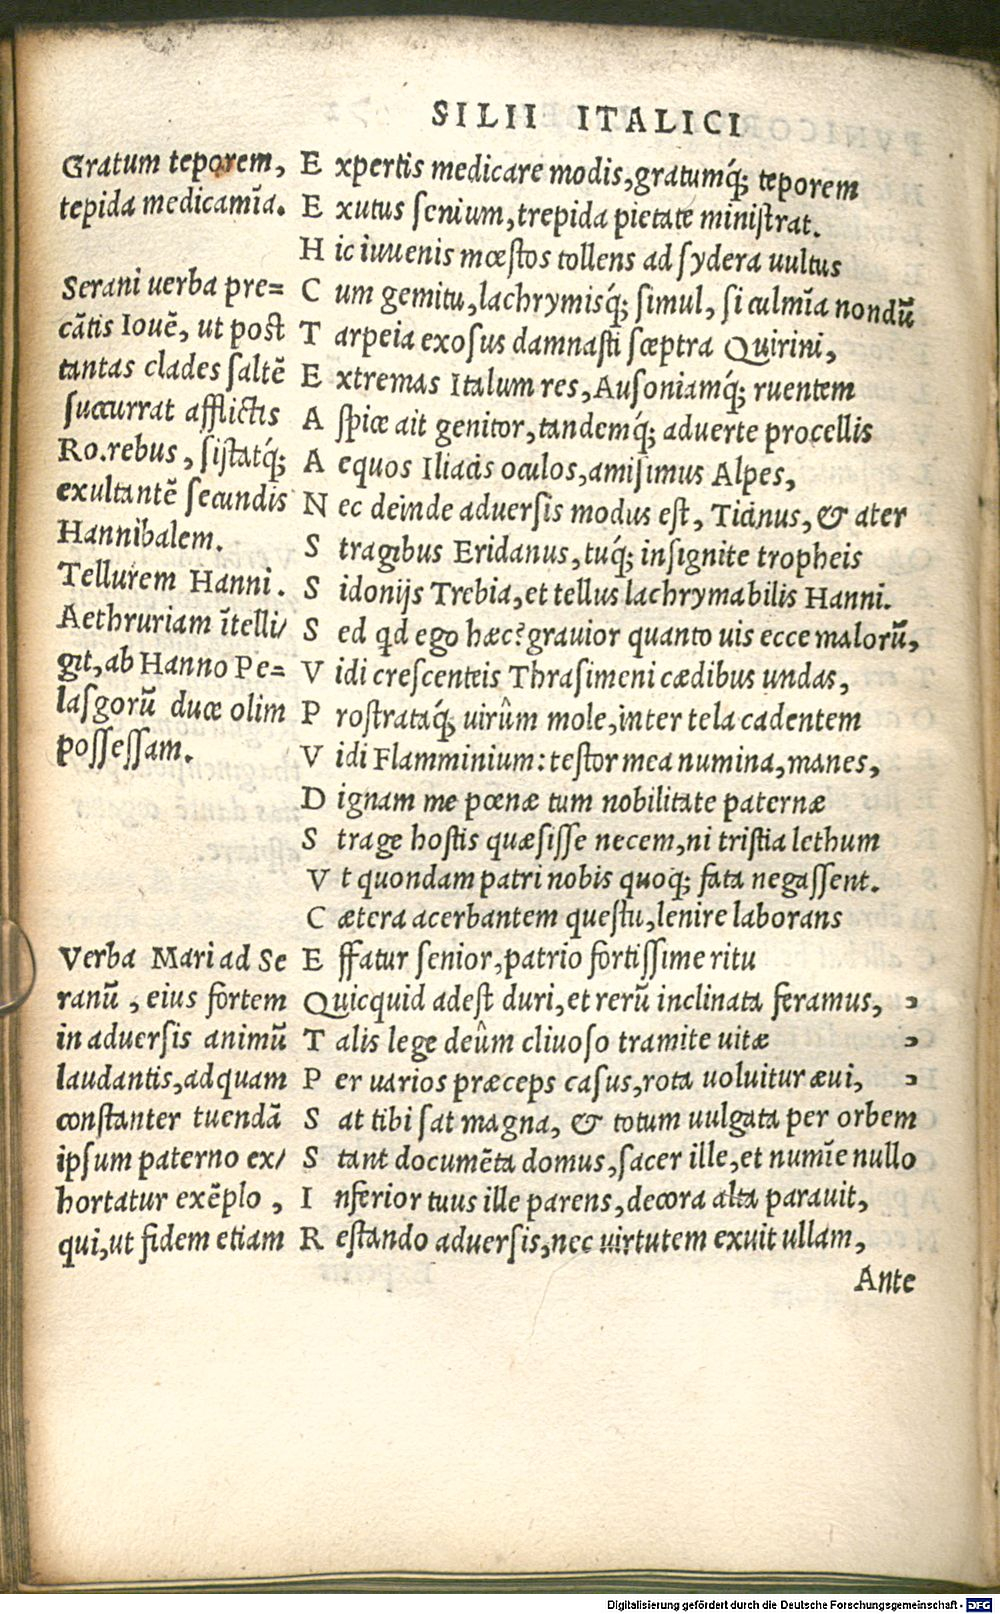 SILII ITALICI
Gratum teporem,
tepida medicamīa.
Serani uerba pre=
cātis Iouē, ut post
tantas clades saltē
succurrat afflictis
Ro.rebus, sistatq́;
exultantē secundis
Hannibalem.
Tellurem Hanni.
Aethruriam ītelli/
git, ab Hanno Pe=
lasgorū duce olim
possessam.
Verba Mari ad Se
ranū, eius fortem
in aduersis animū
laudantis, ad quam
constanter tuendā
ipsum paterno ex/
hortatur exēplo,
qui, ut fidem etiam
Expertis medicare modis, gratumq́; teporem
Exutus senium, trepida pietate ministrat.
Hic iuuenis mœstos tollens ad sydera uultus
Cum gemitu, lachrymisq́; simul, si culmīa nondū
Tarpeia exosus damnasti sceptra Quirini,
Extremas Italum res, Ausoniamq́; ruentem
Aspice ait genitor, tandemq́; aduerte procellis
Aequos Iliacis oculos, amisimus Alpes,
Nec deinde aduersis modus est, Ticinus, & ater
Stragibus Eridanus, tuq́; insignite tropheis
Sidonijs Trebia, et tellus lachrymabilis Hanni.
Sed qd ego hæc? grauior quanto uis ecce malorū,
Vidi crescenteis Thrasimeni cædibus undas,
Prostrataq́; uirûm mole, inter tela cadentem
Vidi Flamminium: testor mea numina, manes,
Dignam me pœnæ tum nobilitate paternæ
Strage hostis quæsisse necem, ni tristia lethum
Vt quondam patri nobis quoq; fata negassent.
Cætera acerbantem questu, lenire laborans
Effatur senior, patrio fortissime ritu
Quicquid adest duri, et rerū inclinata feramus, „
Talis lege deûm cliuoso tramite uitæ „
Per uarios præceps casus, rota uoluitur æui, „
Sat tibi sat magna, & totum uulgata per orbem
Stant documēta domus, sacer ille, et numīe nullo
Inferior tuus ille parens, decora alta parauit,
Restando aduersis, nec uirtutem exuit ullam,
Ante
Digitalisierung gefördert durch die Deutsche Forschungsgemeinschaft - DFG